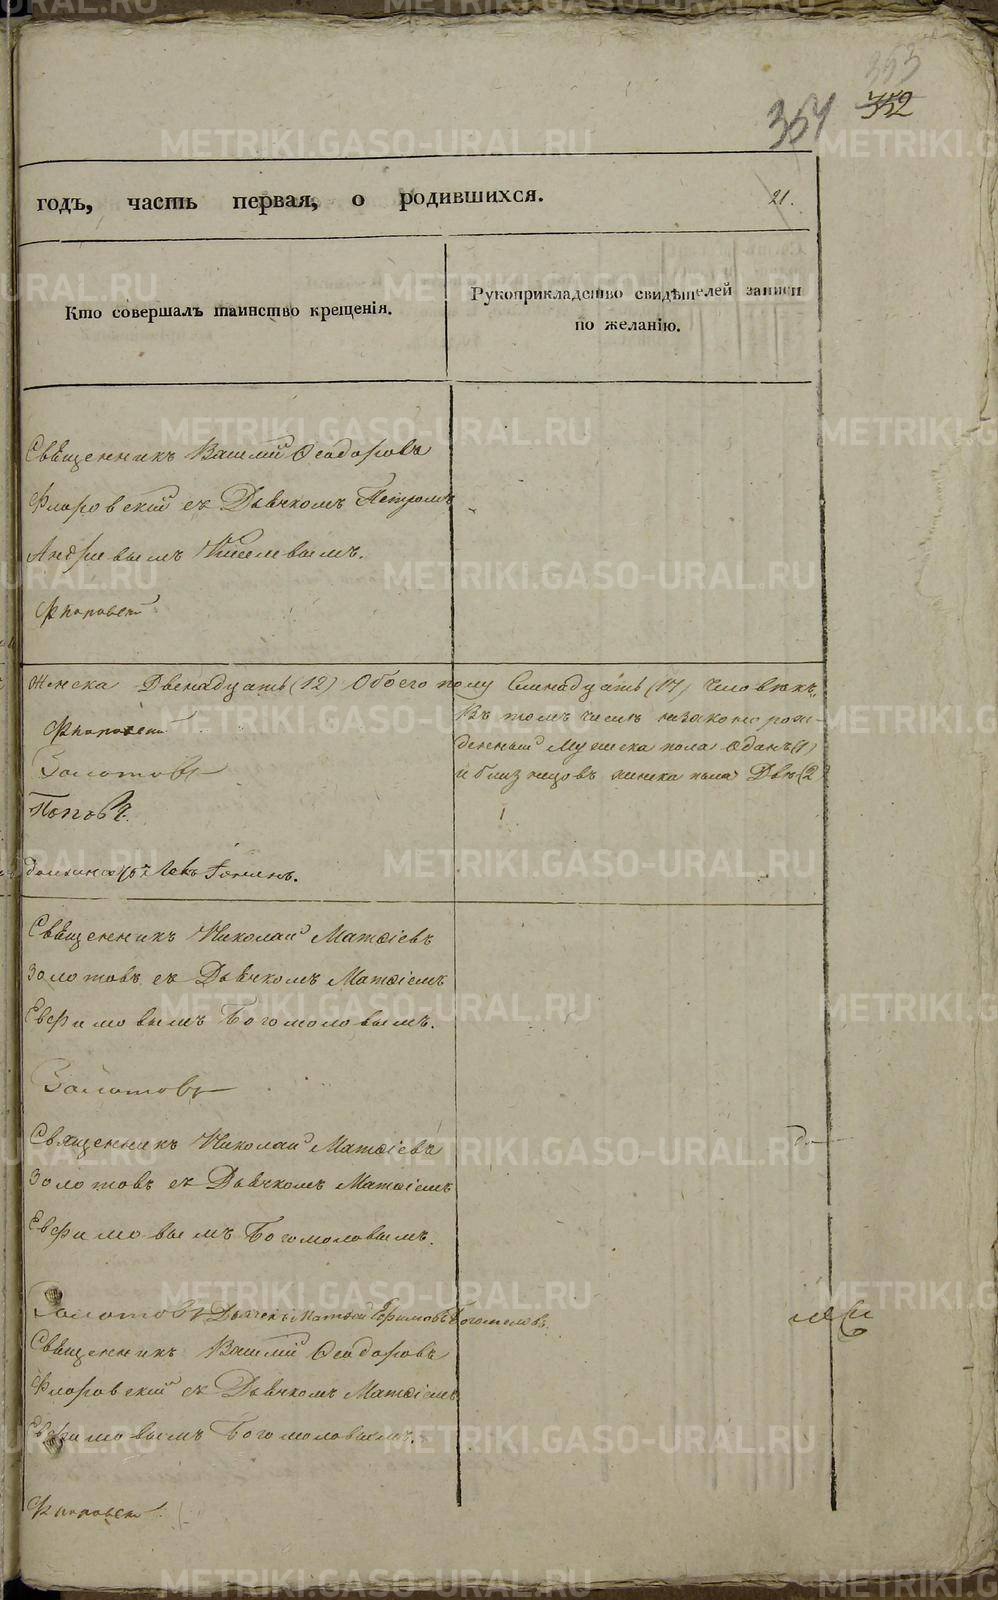 353
352
354
годъ, часть первая, о родившихся.
21.
Кто совершалъ таинство крещенія.
Рукоприкладство свидѣтелей записи
по желанію.
Свѣщенникъ Василій Ѳеодоровъ
Флоровскій съ Дьячкомъ Петромъ
Андріевымъ Киселевымъ.
Флоровскій
Женска Двенадцать (12) Обоего полу Семнадцать (17) человѣкъ.
Флоровскій
Золотовъ
Поповъ.
Въ томъ числѣ незаконорож-
денный Мужеска пола Одинъ (1)
и близнецовъ женска пола Двѣ (2
Свѣщенникъ Николай Матѳіевъ
Золотовъ съ Дьячкомъ Матѳіемъ
Евфимовымъ Богомоловымъ.
Золотовъ
Священникъ Николай Матѳіевъ
Золотовъ съ Дьячкомъ Матѳіемъ
Евфимовымъ Богомоловымъ.
Золотовъ Дьячекъ Матвей Ефимовъ Богомоловъ.
Свѣщенникъ Василій Ѳеодоровъ
Флоровскій съ Дьячкомъ Матѳіемъ
Евфимовымъ Богомоловымъ.
Флоровскій
METRIKI.GASO-URAL.RU